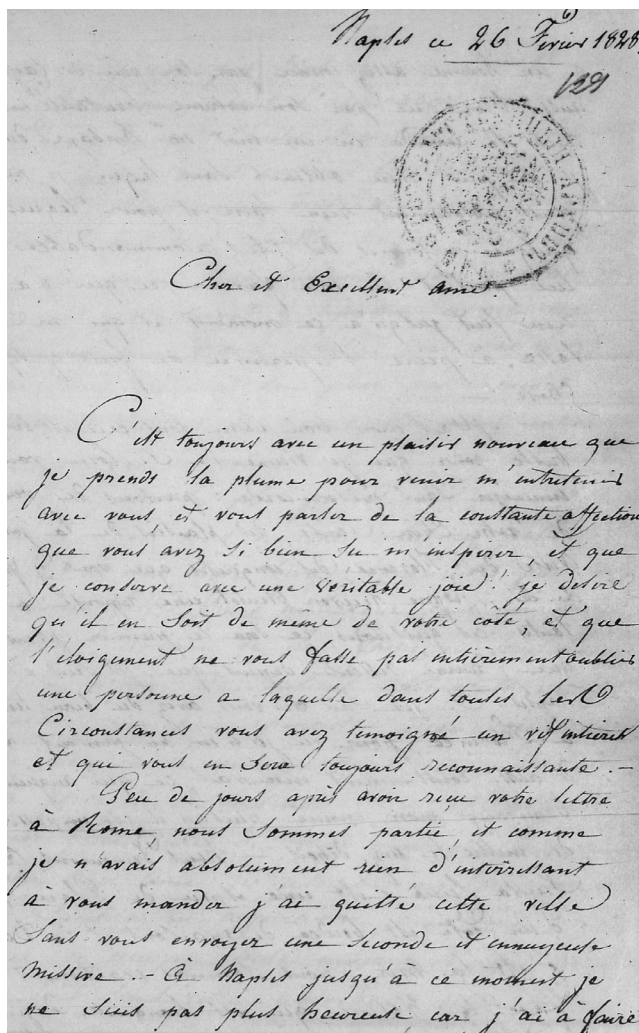 Naples ce 26 Fevrier 1828
129
Cher et Excellent ami.
C'est toujours avec un plaisir nouveau que
je prends la plume pour venir m'entretenir
avec vous et vous parler de la constante affection
que vous avez si bien su m'insperer, et que
je conserve avec une veritable joie! je désire
qu'il en soit de même de votre côté, et que
l'éloigement ne vous fasse pas entièrement oublier
une personne a laquelle dans toutes les
Circonstances vous avez temoigné un vif interet
et qui vous en sera toujours reconnaissante. -
Peu de jours après avoir reçu votre lettre
à Rome, nous sommes partie, et comme
je n'avais absolument rien d'interressant
à vous mander j'ai quitté cette ville
sans vous envoyer une seconde et ennuyeuse
missive. - À Naples jusqu'à ce moment je
ne suis pas plus heureuse, car j'ai à faire